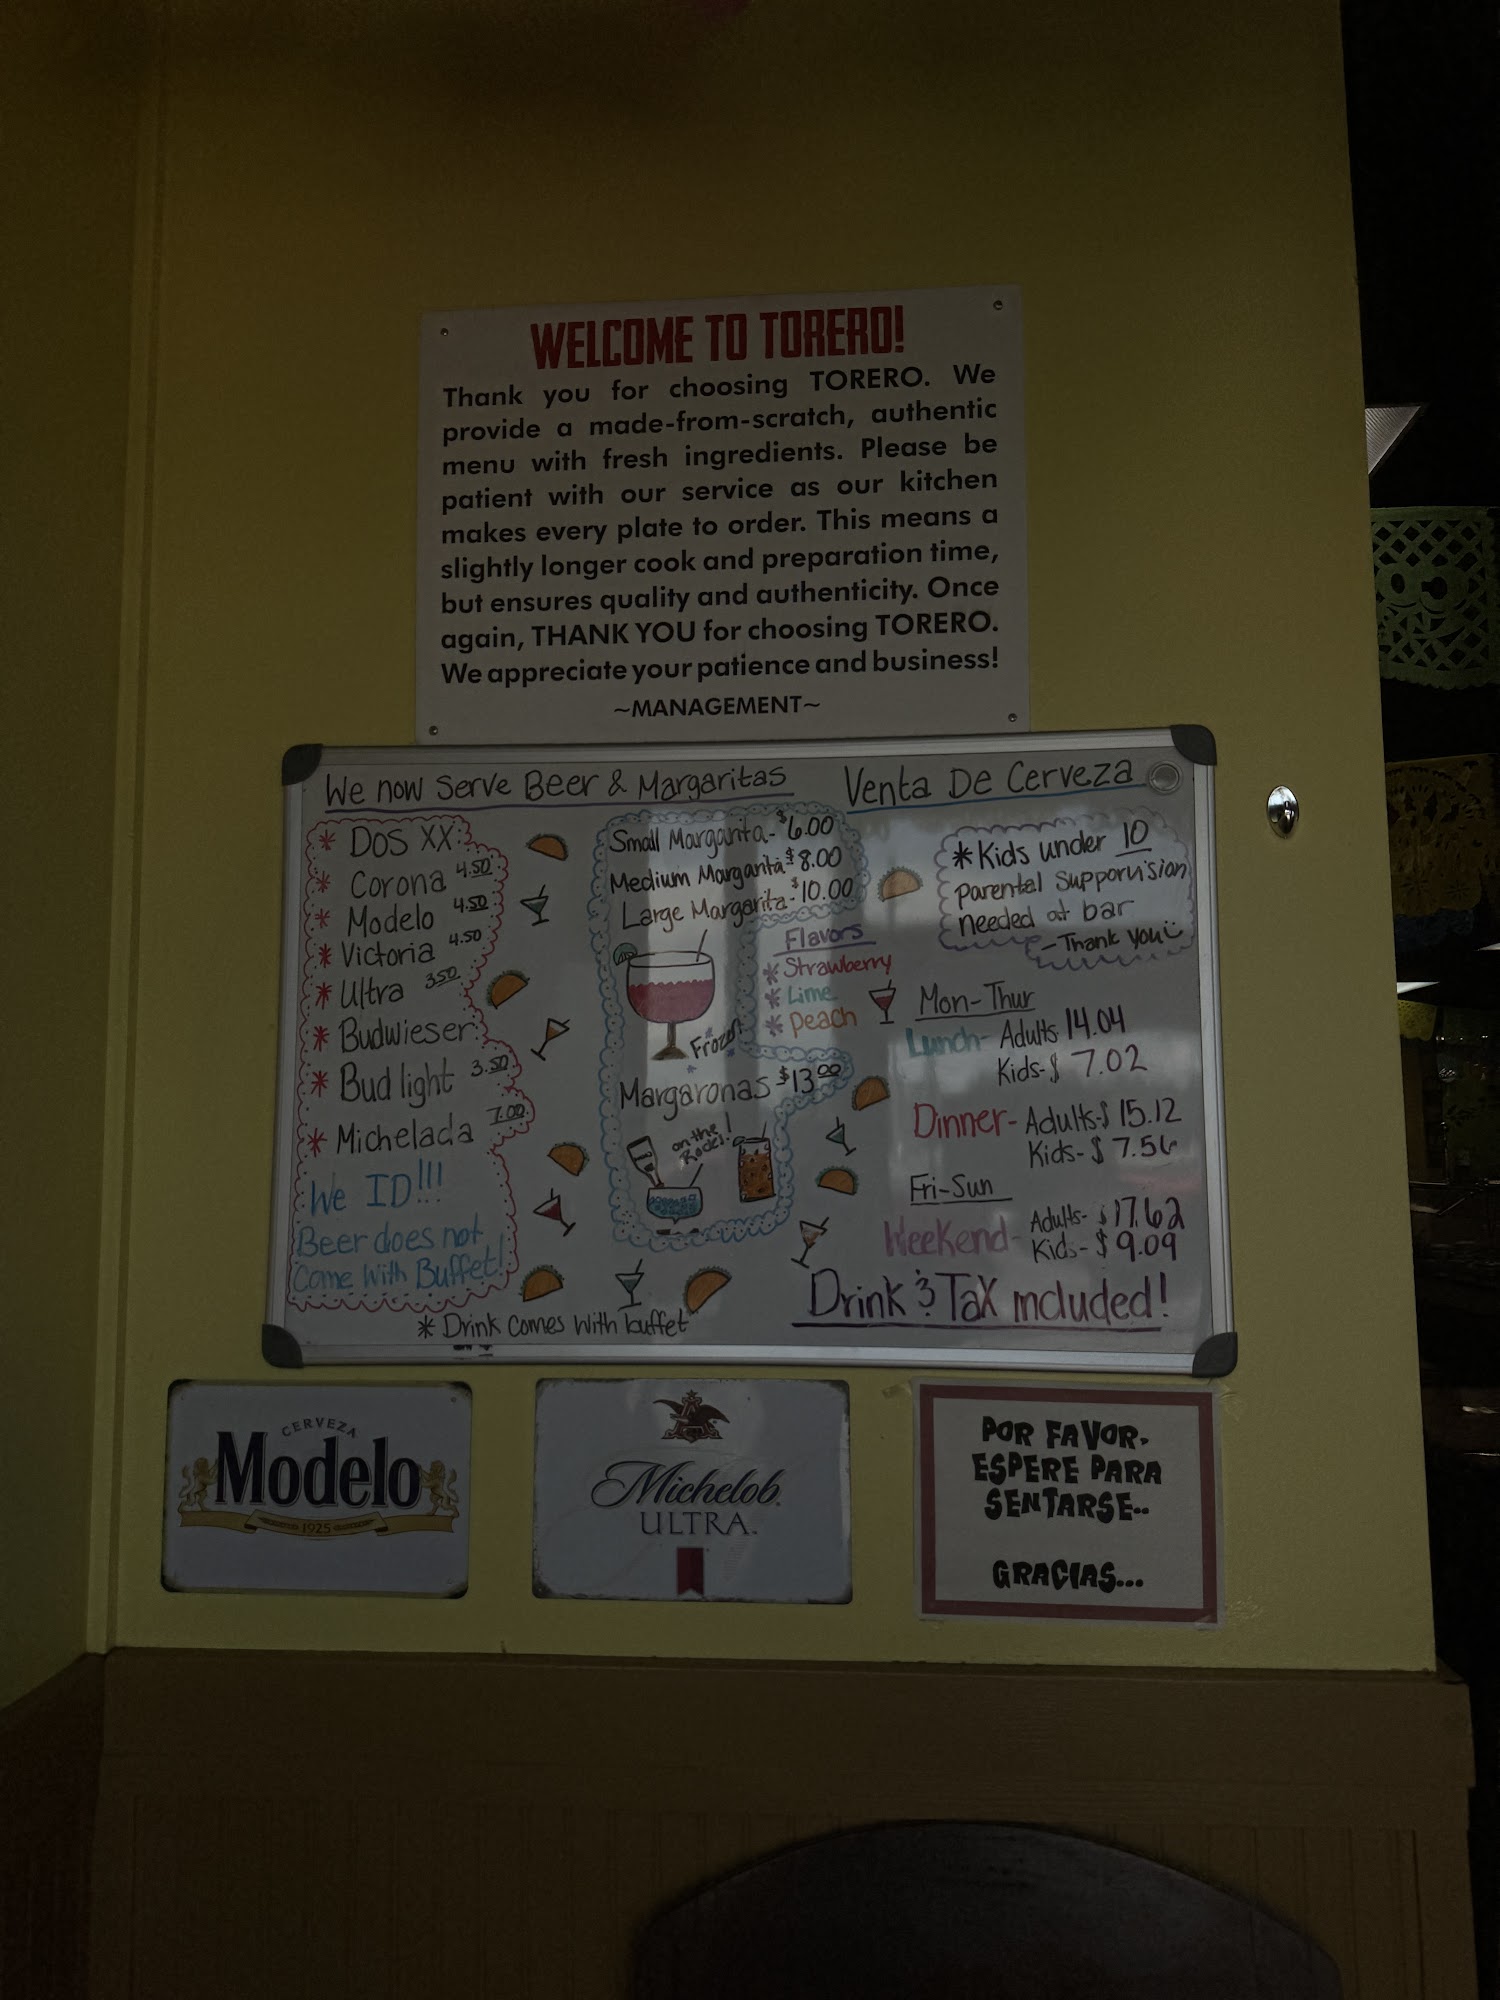 WELCOME TO TORERO!
Thank you for choosing TORERO. We
provide a made-from-scratch, authentic
menu with fresh ingredients. Please be
patient with our service as our kitchen
makes every plate to order. This means a
slightly longer cook and preparation time,
but ensures quality and authenticity. Once
again, THANK YOU for choosing TORERO.
We appreciate your patience and business!
~MANAGEMENT~
We now serve Beer & Margaritas
Venta De Cerveza
* Dos XX
* Corona 4.50
* Modelo 4.50
* Victoria 4.50
* Ultra 3.50
* Budwieser
* Bud light 3.50
* Michelada 7.00
We ID!!!
Beer does not
Come With Buffet!
Small Margarita - $6.00
Medium Margarita $8.00
Large Margarita - $10.00
Flavors
* Strawberry
* Lime
* Peach
Frozen
Margaronas $13.00
on the
Rocks!
* Drink comes with buffet
* Kids under 10
parental supporvision
needed at bar
- Thank you
Mon-Thur
Lunch- Adults 14.04
Kids-$ 7.02
Dinner- Adults-$ 15.12
Kids- $ 7.56
Fri-Sun
Weekend- Adults- $ 17.62
Kids- $ 9.09
Drink & Tax included!
CERVEZA
Modelo
1925
Michelob
ULTRA
POR FAVOR.
ESPERE PARA
SENTARSE..
GRACIAS...